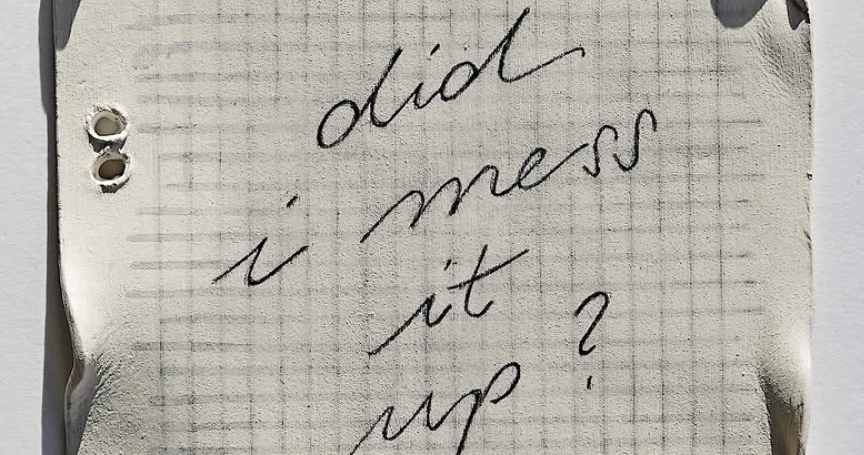 did
i mess
it
up?